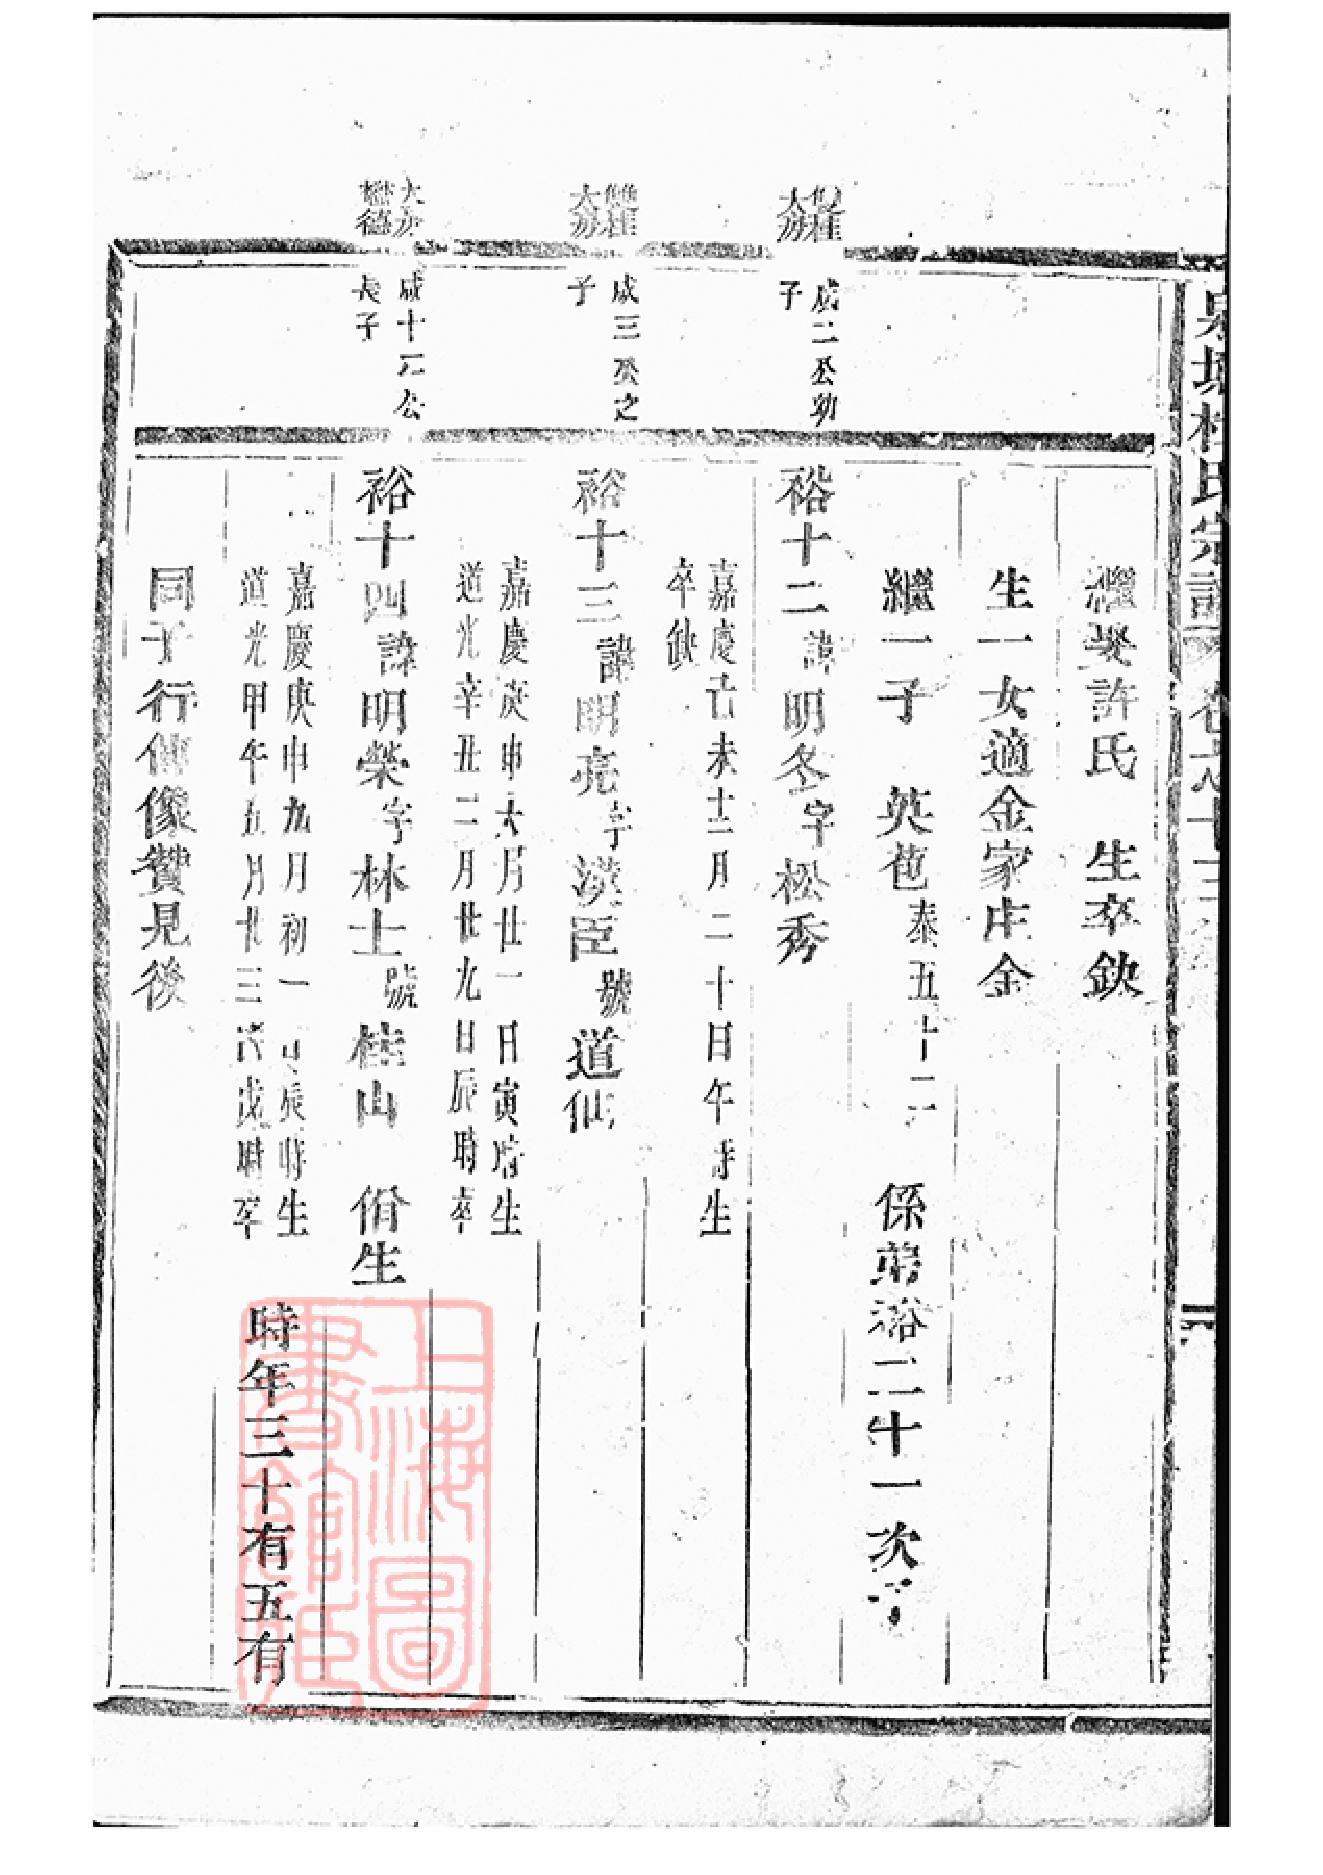 氏宗譜 卷之十三
繼娶許氏 生卒缺
生一女適金家庄金
繼一子 英苞泰五十二 係弟裕二十一次子
雙桂
大房
成二公幼
子
裕十二諱明冬字松秀
嘉慶己未十二月二十日午時生
卒缺
雙桂
大房
成三公之
子
裕十三諱明亮字漢臣號道仙
嘉慶庚申六月廿一日寅時生
道光辛丑二月廿九日辰時卒
大房
懋德
成十二公
長子
裕十四諱明榮字林士號桂山 佾生
嘉慶庚申九月初一日辰時生
道光甲午五月廿三日戌時卒
時年三十有五有
同子行傳像贊見後
上海圖書館藏